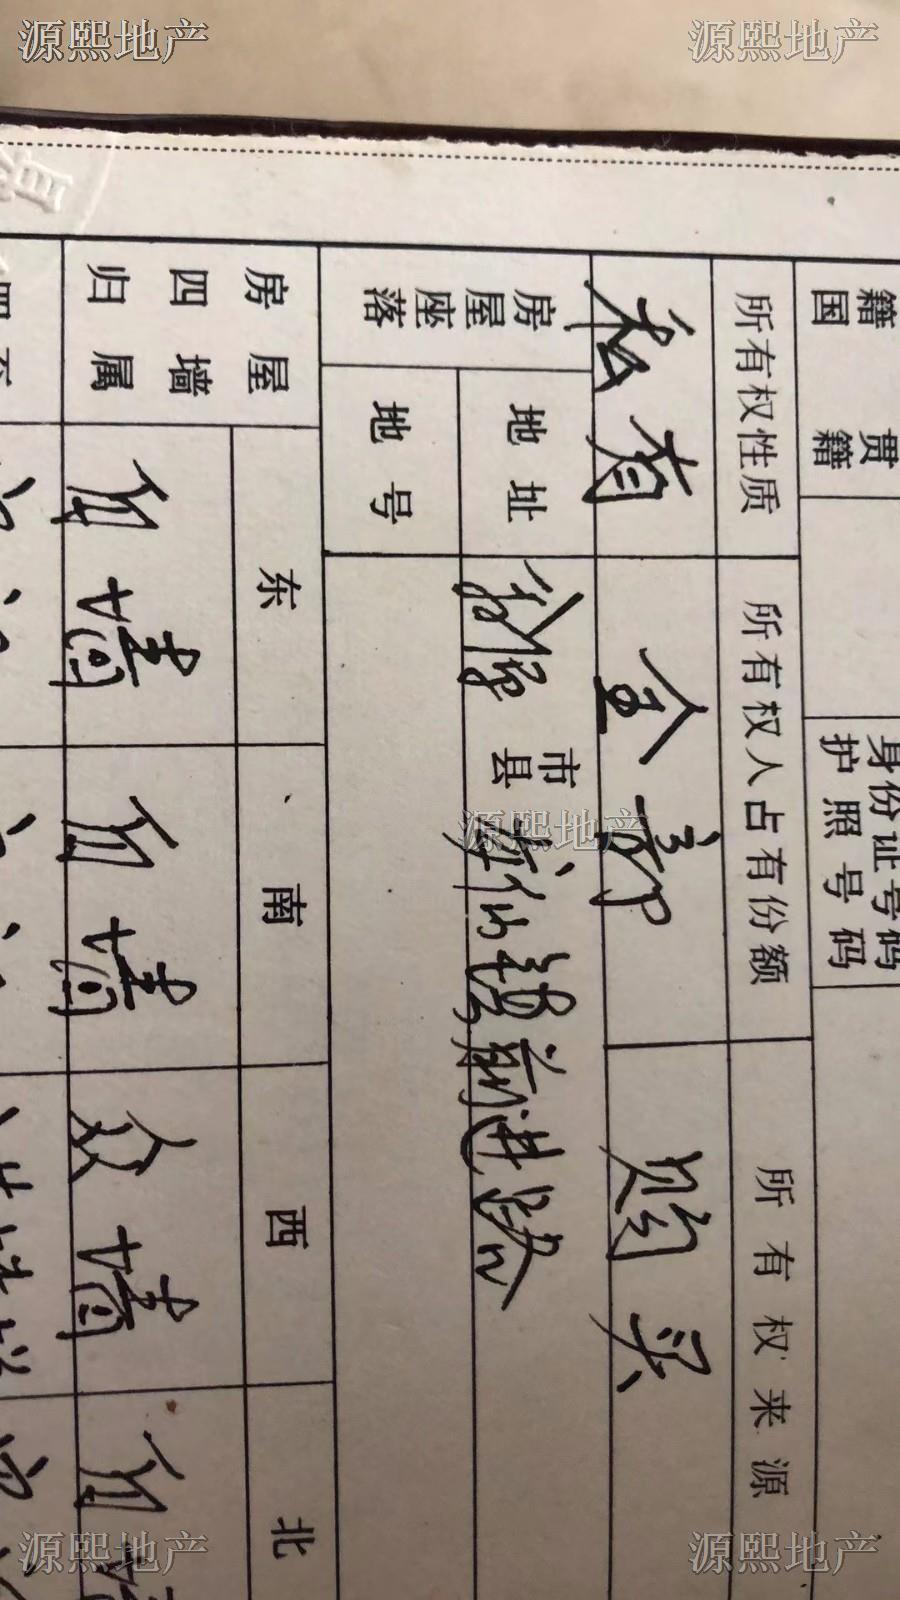 源熙地产
源熙地产
籍贯 身份证号码
国籍 护照号码
所有权性质 所有权人占有份额 所有权来源
私有 全部 购买
房屋座落 地址 翁源 市县 龙仙镇前进路
地号
房屋四墙归属 东 南 西 北
自墙 自墙 众墙 自墙
源熙地产
源熙地产
源熙地产